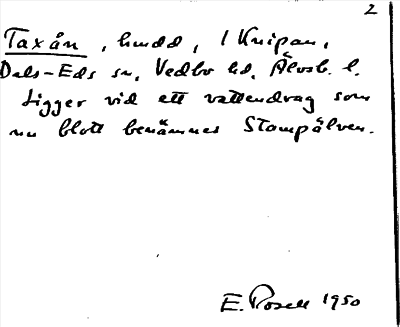 2
Taxån, hmdd, i Knipan,
Dals-Eds sn, Vedbo hd, Älvsb. l.
Ligger vid ett vattendrag som
nu blott benämnes Stampälven.
E. Rosell 1950